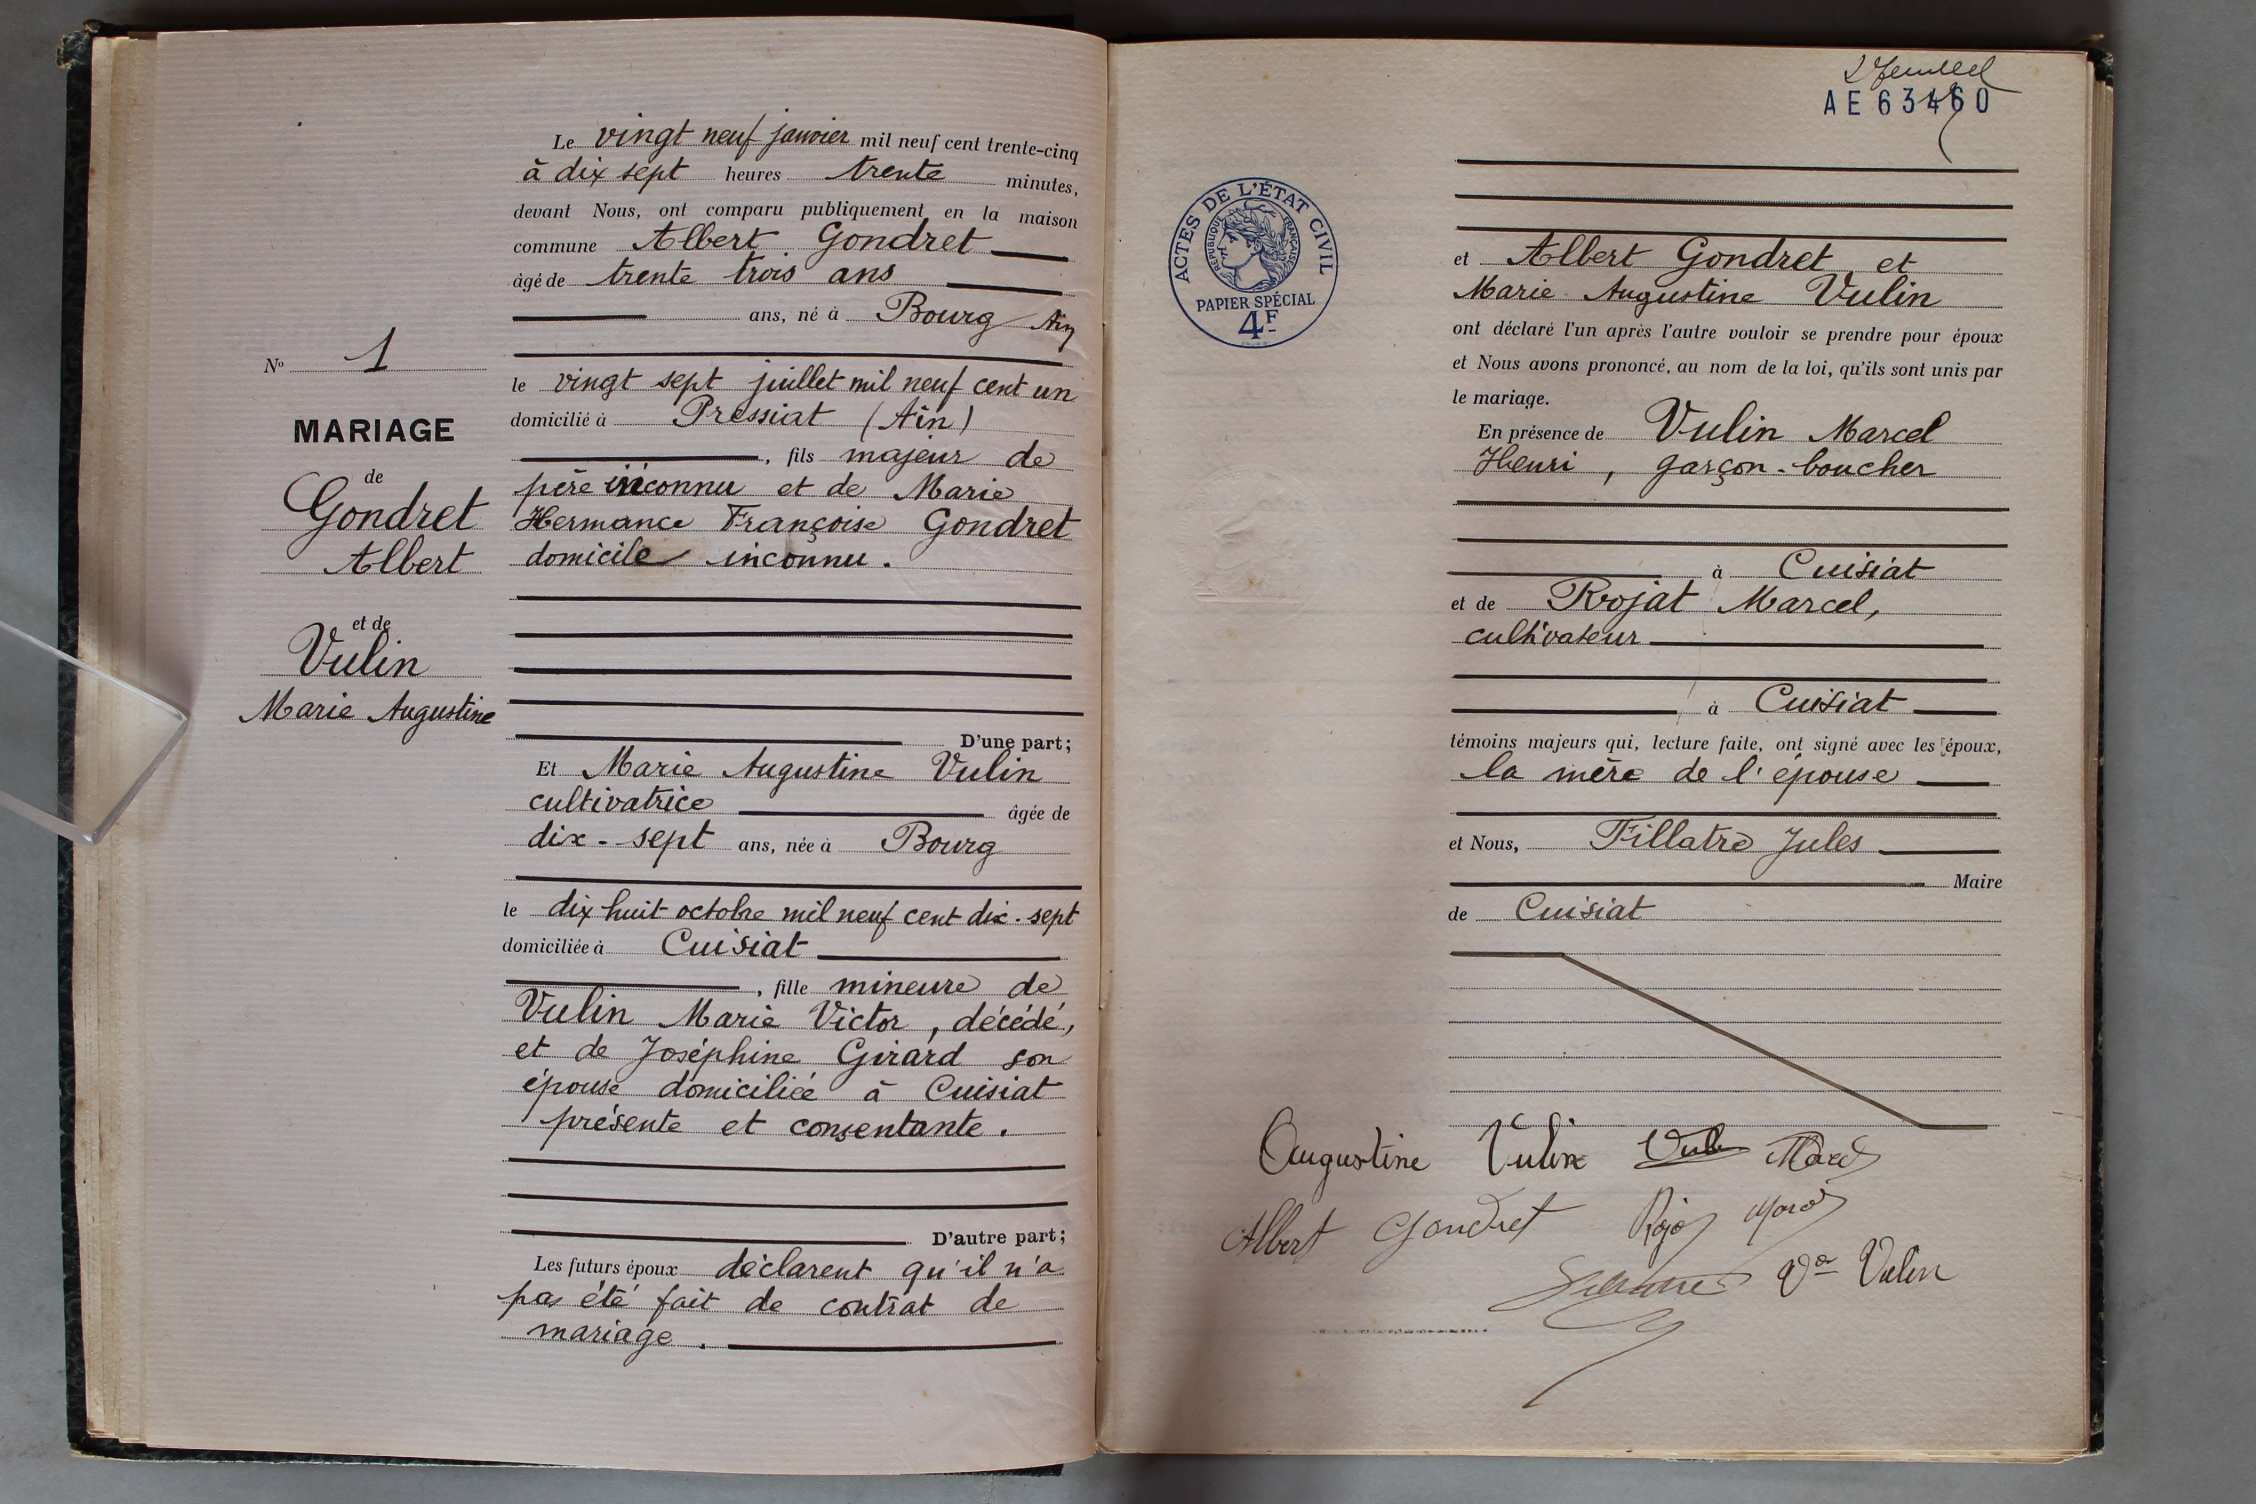 Le vingt neuf janvier mil neuf cent trente-cinq
à dix sept heures trente minutes,
devant Nous, ont comparu publiquement en la maison
commune Albert Gondret
âgé de trente trois ans
ans, né à Bourg Ain
le vingt sept juillet mil neuf cent un
domicilié à Pressiat (Ain)
, fils majeur de
père inconnu et de Marie
Hermance Françoise Gondret
domicile inconnu.
D'une part;
Et Marie Augustine Vulin
cultivatrice âgée de
dix-sept ans, née à Bourg
le dix huit octobre mil neuf cent dix-sept
domiciliée à Cuisiat
, fille mineure de
Vulin Marie Victor, décédé,
et de Joséphine Girard son
épouse domiciliée à Cuisiat
présente et consentante.
D'autre part;
Les futurs époux déclarent qu'il n'a
pas été fait de contrat de
mariage.
No 1
MARIAGE
de
Gondret
Albert
et de
Vulin
Marie Augustine
AE 63460
ACTES DE L'ÉTAT CIVIL
RÉPUBLIQUE FRANÇAISE
PAPIER SPÉCIAL
4F
et Albert Gondret et
Marie Augustine Vulin
ont déclaré l'un après l'autre vouloir se prendre pour époux
et Nous avons prononcé, au nom de la loi, qu'ils sont unis par
le mariage.
En présence de Vulin Marcel
Henri, garçon-boucher
à Cuisiat
et de Rojat Marcel,
cultivateur
à Cuisiat
témoins majeurs qui, lecture faite, ont signé avec les époux,
la mère de l'épouse
et Nous, Fillatre Jules
Maire
de Cuisiat
Augustine Vulin
Albert Gondret
Vve Vulin